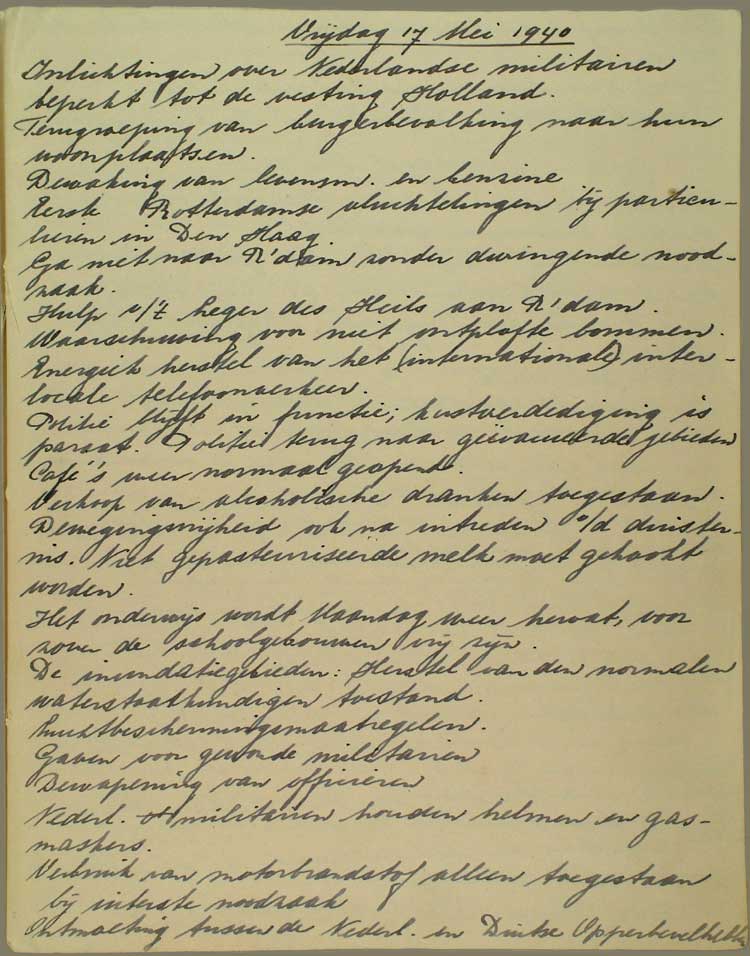 Vrijdag 17 Mei 1940
Inlichtingen over Nederlandse militairen
beperkt tot de vesting Holland.
Terugroeping van burgerbevolking naar hun
woonplaatsen.
Bewaking van levensm. en benzine
Eerste Rotterdamse vluchtelingen bij particu-
lieren in Den Haag.
Ga niet naar R'dam zonder dwingende nood-
zaak.
Hulp v/'t Leger des Heils aan R'dam.
Waarschuwing voor niet ontplofte bommen.
Energiek herstel van het (internationale) inter-
locale telefoonverkeer.
Politie blijft in functie; kustverdediging is
paraat. Politie terug naar geëvacueerde gebieden
Café's weer normaal geopend.
Verkoop van alcoholische dranken toegestaan.
Bewegingsvrijheid ook na intreden v/d duister-
nis. Niet gepasteuriseerde melk moet gekookt
worden.
Het onderwijs wordt Maandag weer hervat, voor
zover de schoolgebouwen vrij zijn.
De inundatiegebieden: Herstel van den normalen
waterstaatkundigen toestand.
Luchtbeschermingsmaatregelen.
Gaven voor gewonde militairen
Bewapening van officieren
Nederl. militairen houden helmen en gas-
maskers.
Verbruik van motorbrandstof alleen toegestaan
bij uiterste noodzaak
Ontmoeting tussen de Nederl. en Duitse Opperbevelhebber